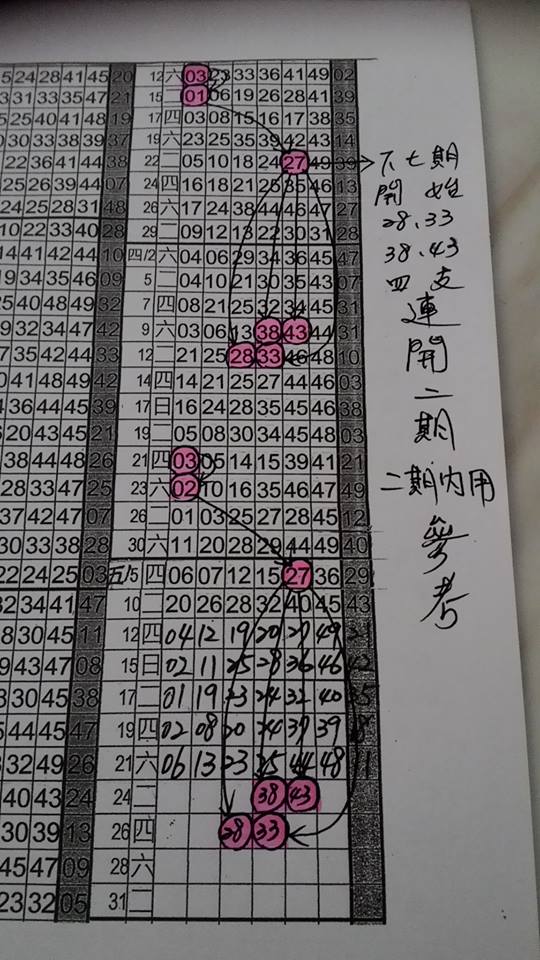 5 24 28 41 45 20 12 六 03 23 33 36 41 49 02
3 31 33 35 47 21 15 二 01 06 19 26 28 41 39
5 25 40 41 48 19 17 四 03 08 15 16 17 38 35
0 30 33 38 39 37 19 六 23 25 35 39 42 43 14
22 36 41 44 38 22 二 05 10 18 24 27 49 39
25 26 39 44 07 24 四 16 18 21 25 35 46 13
24 25 28 31 48 26 六 17 24 38 44 46 47 27
10 22 33 40 28 29 二 09 12 13 22 30 31 28
14 41 42 44 10 四/2 六 04 06 29 34 36 45 47
19 34 35 46 09 5 二 04 10 21 30 35 43 07
25 40 48 49 32 7 四 08 21 25 32 34 45 31
9 32 34 47 42 9 六 03 06 13 38 43 44 31
7 35 42 44 33 12 二 21 25 28 33 46 48 10
0 41 48 49 42 14 四 14 21 25 27 44 46 03
4 36 44 45 39 17 日 16 24 28 35 45 46 38
6 20 43 45 21 19 二 05 08 30 34 45 48 03
38 44 48 26 21 四 03 05 14 15 39 41 21
28 33 47 25 23 六 02 10 16 35 46 47 49
37 42 47 07 26 二 01 03 25 27 28 45 12
30 33 38 28 30 六 11 20 28 29 44 49 40
22 24 25 03 五/5 四 06 07 12 15 27 36 29
32 34 41 47 10 二 20 26 28 32 40 45 43
8 30 45 11 12 四 04 12 19 20 27 49 21
9 43 47 08 15 日 02 11 25 28 36 46 42
3 30 45 38 17 二 01 19 23 24 32 40 35
5 44 45 47 19 四 02 08 20 24 37 39 18
8 32 49 26 21 六 06 13 23 25 44 48 11
40 40 43 27 24 二 38 43
30 39 13 26 四 28 33
45 47 09 28 六
23 32 05 31 二
下七期
開 始
28.33
38.43
四 支
連
開
二
期
二期內用
參
考